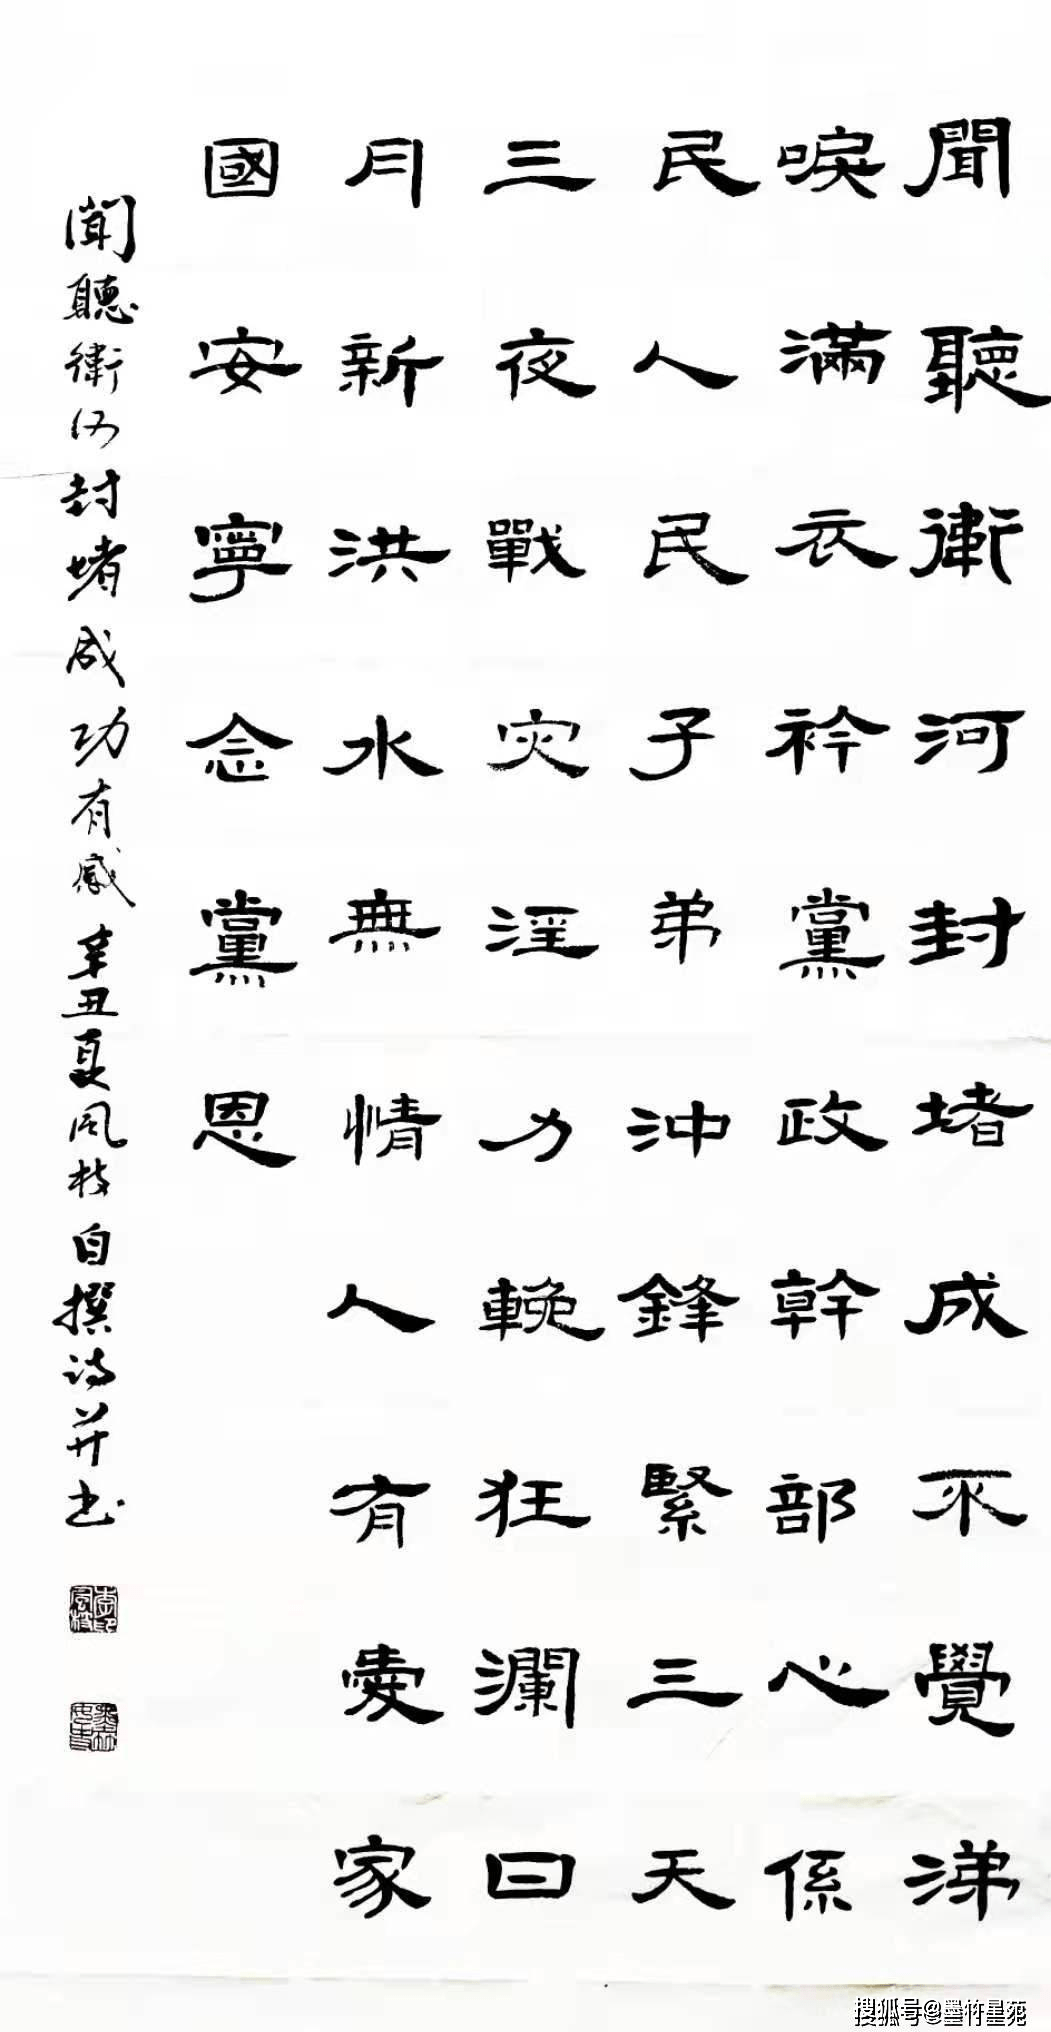 聞聽衛河封堵成不覺涕
唳滿衣衿黨政幹部心係
民人民子弟沖鋒緊三天
三夜戰灾淫力輓狂瀾日
月新洪水無情人有愛家
國安寧念黨恩
聞聽衛河封堵成功有感辛丑夏風枝自撰詩并书
搜狐号@墨竹星苑